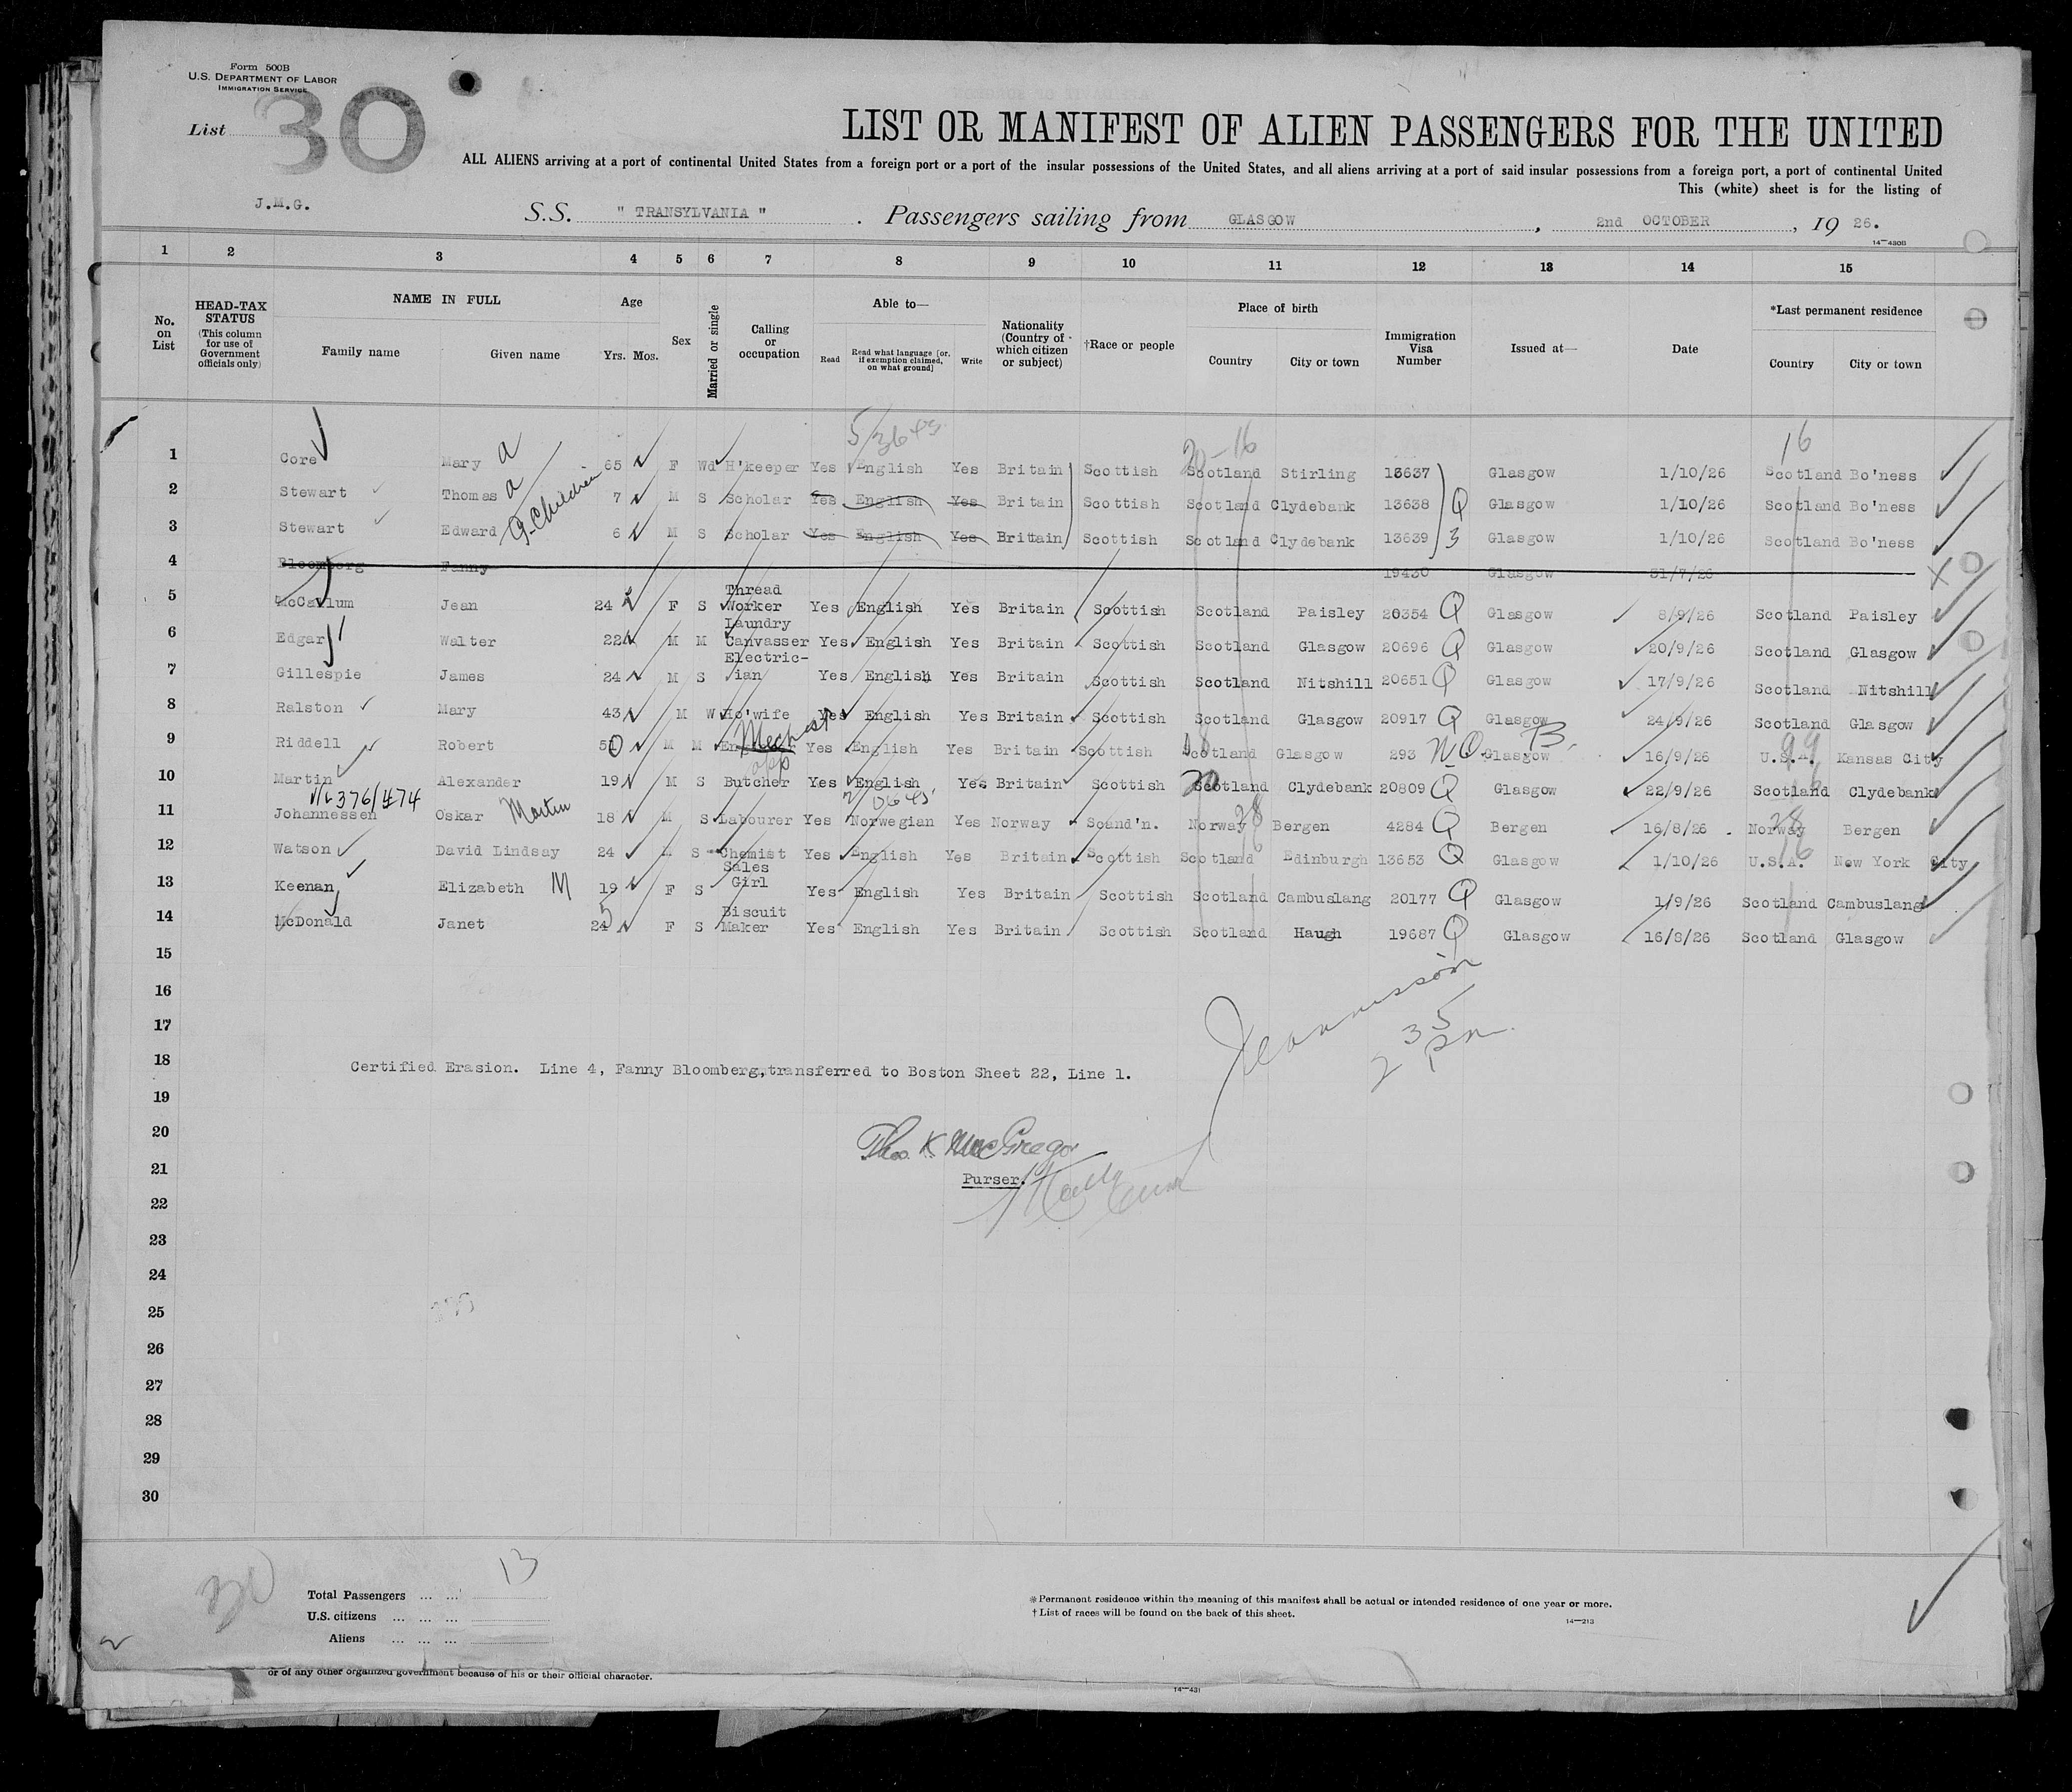 Form 500B
U.S. DEPARTMENT OF LABOR
IMMIGRATION SERVICE
List 30
LIST OR MANIFEST OF ALIEN PASSENGERS FOR THE UNITED
ALL ALIENS arriving at a port of continental United States from a foreign port or a port of the insular possessions of the United States, and all aliens arriving at a port of said insular possessions from a foreign port, a port of continental United
This (white) sheet is for the listing of
J.M.G.
S.S. " TRANSYLVANIA " . Passengers sailing from GLASGOW , 2nd OCTOBER , 19 26.
14—430B
1 2 3 4 5 6 7 8 9 10 11 12 13 14 15
No. on List
HEAD-TAX STATUS (This column for use of Government officials only)
NAME IN FULL
Family name Given name
Age
Yrs. Mos.
Sex
Married or single
Calling or occupation
Able to—
Read Read what language [or, if exemption claimed, on what ground] Write
Nationality (Country of which citizen or subject)
†Race or people
Place of birth
Country City or town
Immigration Visa Number
Issued at—
Date
*Last permanent residence
Country City or town
5/3645 20-16 16
1 Core Mary a 65 F Wd H'keeper Yes English Yes Britain Scottish Scotland Stirling 13637 Glasgow 1/10/26 Scotland Bo'ness
2 Stewart Thomas a 7 M S Scholar Yes English Yes Britain Scottish Scotland Clydebank 13638 Q Glasgow 1/10/26 Scotland Bo'ness
G. Children
3 Stewart Edward 6 M S Scholar Yes English Yes Britain Scottish Scotland Clydebank 13639 3 Glasgow 1/10/26 Scotland Bo'ness
4 Bloomberg Fanny 19430 Glasgow 31/7/26 X
5 McCallum Jean 24 F S Thread Worker Yes English Yes Britain Scottish Scotland Paisley 20354 Q Glasgow 8/9/26 Scotland Paisley
6 Edgar Walter 22 M M Laundry Canvasser Yes English Yes Britain Scottish Scotland Glasgow 20696 Q Glasgow 20/9/26 Scotland Glasgow
7 Gillespie James 24 M S Electric-ian Yes English Yes Britain Scottish Scotland Nitshill 20651 Q Glasgow 17/9/26 Scotland Nitshill
8 Ralston Mary 43 M W Ho'wife Yes English Yes Britain Scottish Scotland Glasgow 20917 Q Glasgow 24/9/26 Scotland Glasgow
9 Riddell Robert 50 M M Yes English Yes Britain Scottish Scotland Glasgow 293 NQ Glasgow B. 16/9/26 U.S.A. 99 Kansas City
10 Martin Alexander 19 M S Butcher Yes English Yes Britain Scottish 20 Scotland Clydebank 20809 Q Glasgow 22/9/26 Scotland Clydebank
376/474
11 Johannessen Oskar Martin 18 M S Labourer Yes Norwegian Yes Norway Scand'n. Norway 28 Bergen 4284 Q Bergen 16/8/26 Norway 28 Bergen
12 Watson David Lindsay 24 M S Chemist Yes English Yes Britain Scottish Scotland Edinburgh 13653 Q Glasgow 1/10/26 U.S.A. 16 New York City
13 Keenan Elizabeth M 19 F S Sales Girl Yes English Yes Britain Scottish Scotland Cambuslang 20177 Q Glasgow 1/9/26 Scotland Cambuslang
14 McDonald Janet 24 5 F S Biscuit Maker Yes English Yes Britain Scottish Scotland Haugh 19687 Q Glasgow 16/8/26 Scotland Glasgow
15
16
17
235
pm
18 Certified Erasion. Line 4, Fanny Bloomberg,transferred to Boston Sheet 22, Line 1.
19
20 Thos. K MacGregor
21 Purser.
22
23
24
25
26
27
28
29
30
30
Total Passengers ... ... 13
U.S. citizens ... ... ...
Aliens ... ... ...
* Permanent residence within the meaning of this manifest shall be actual or intended residence of one year or more.
† List of races will be found on the back of this sheet.
14—213
or of any other organized government because of his or their official character.
14—431